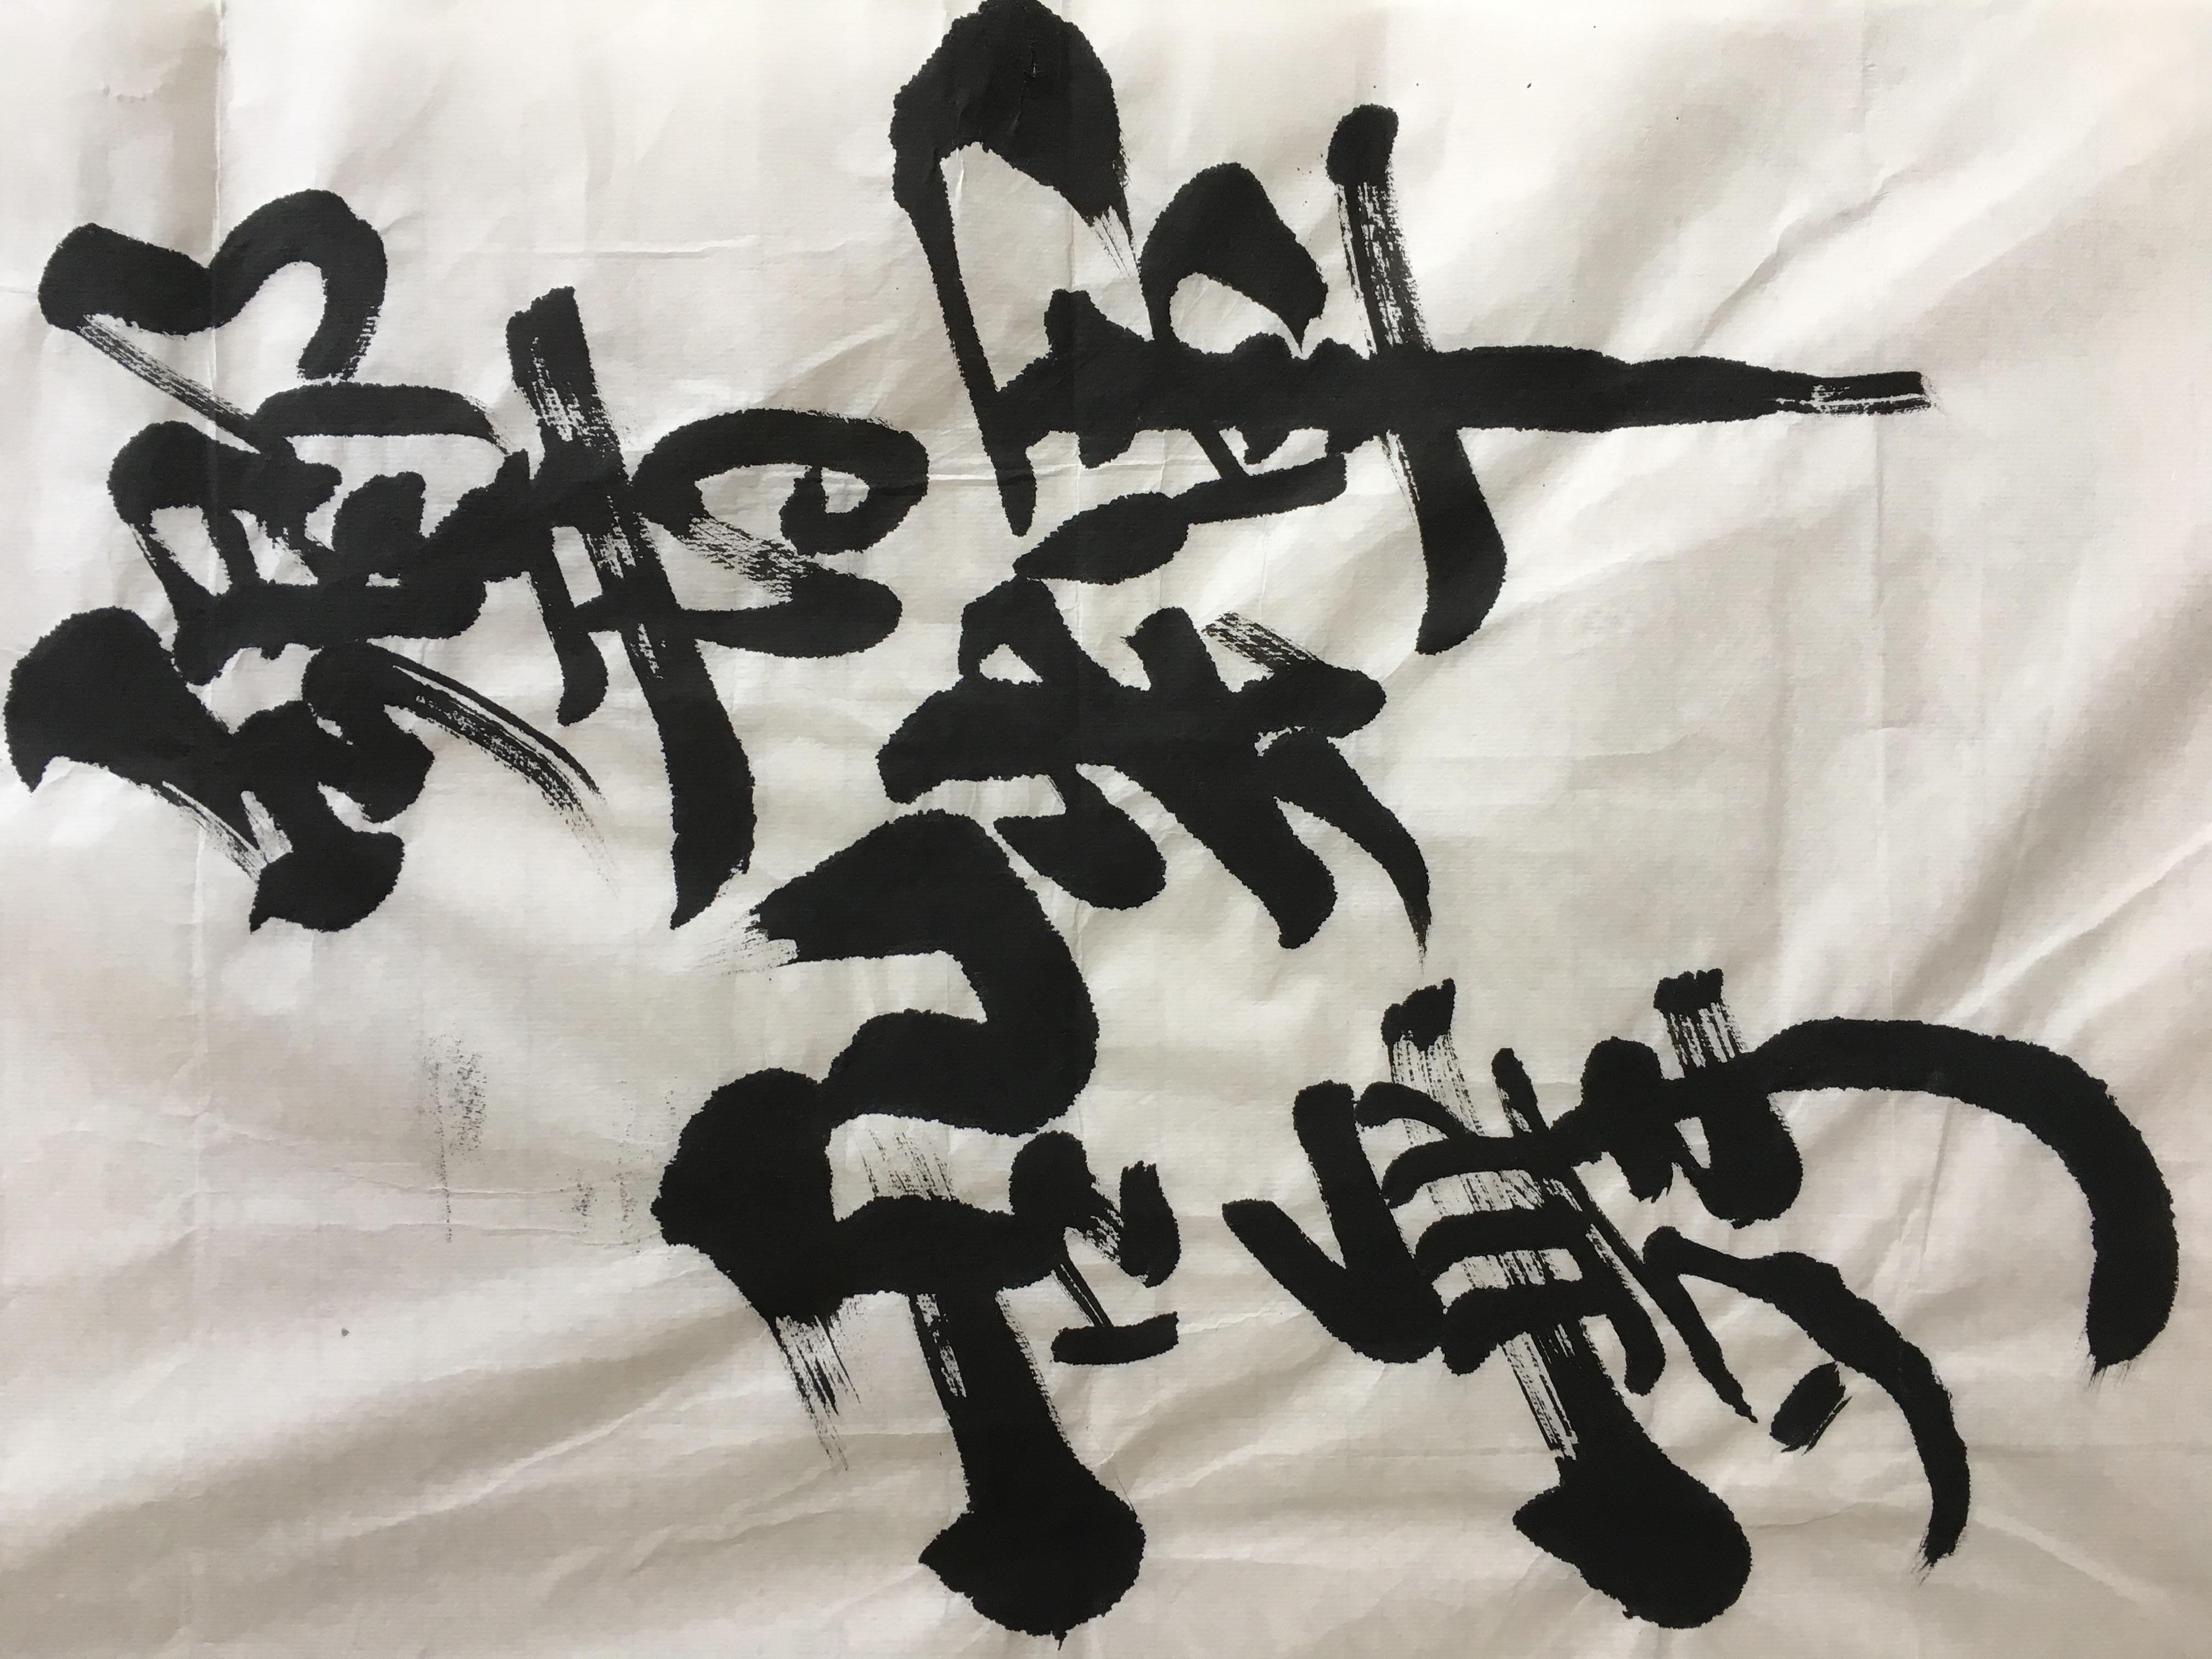 響輝
乱舞